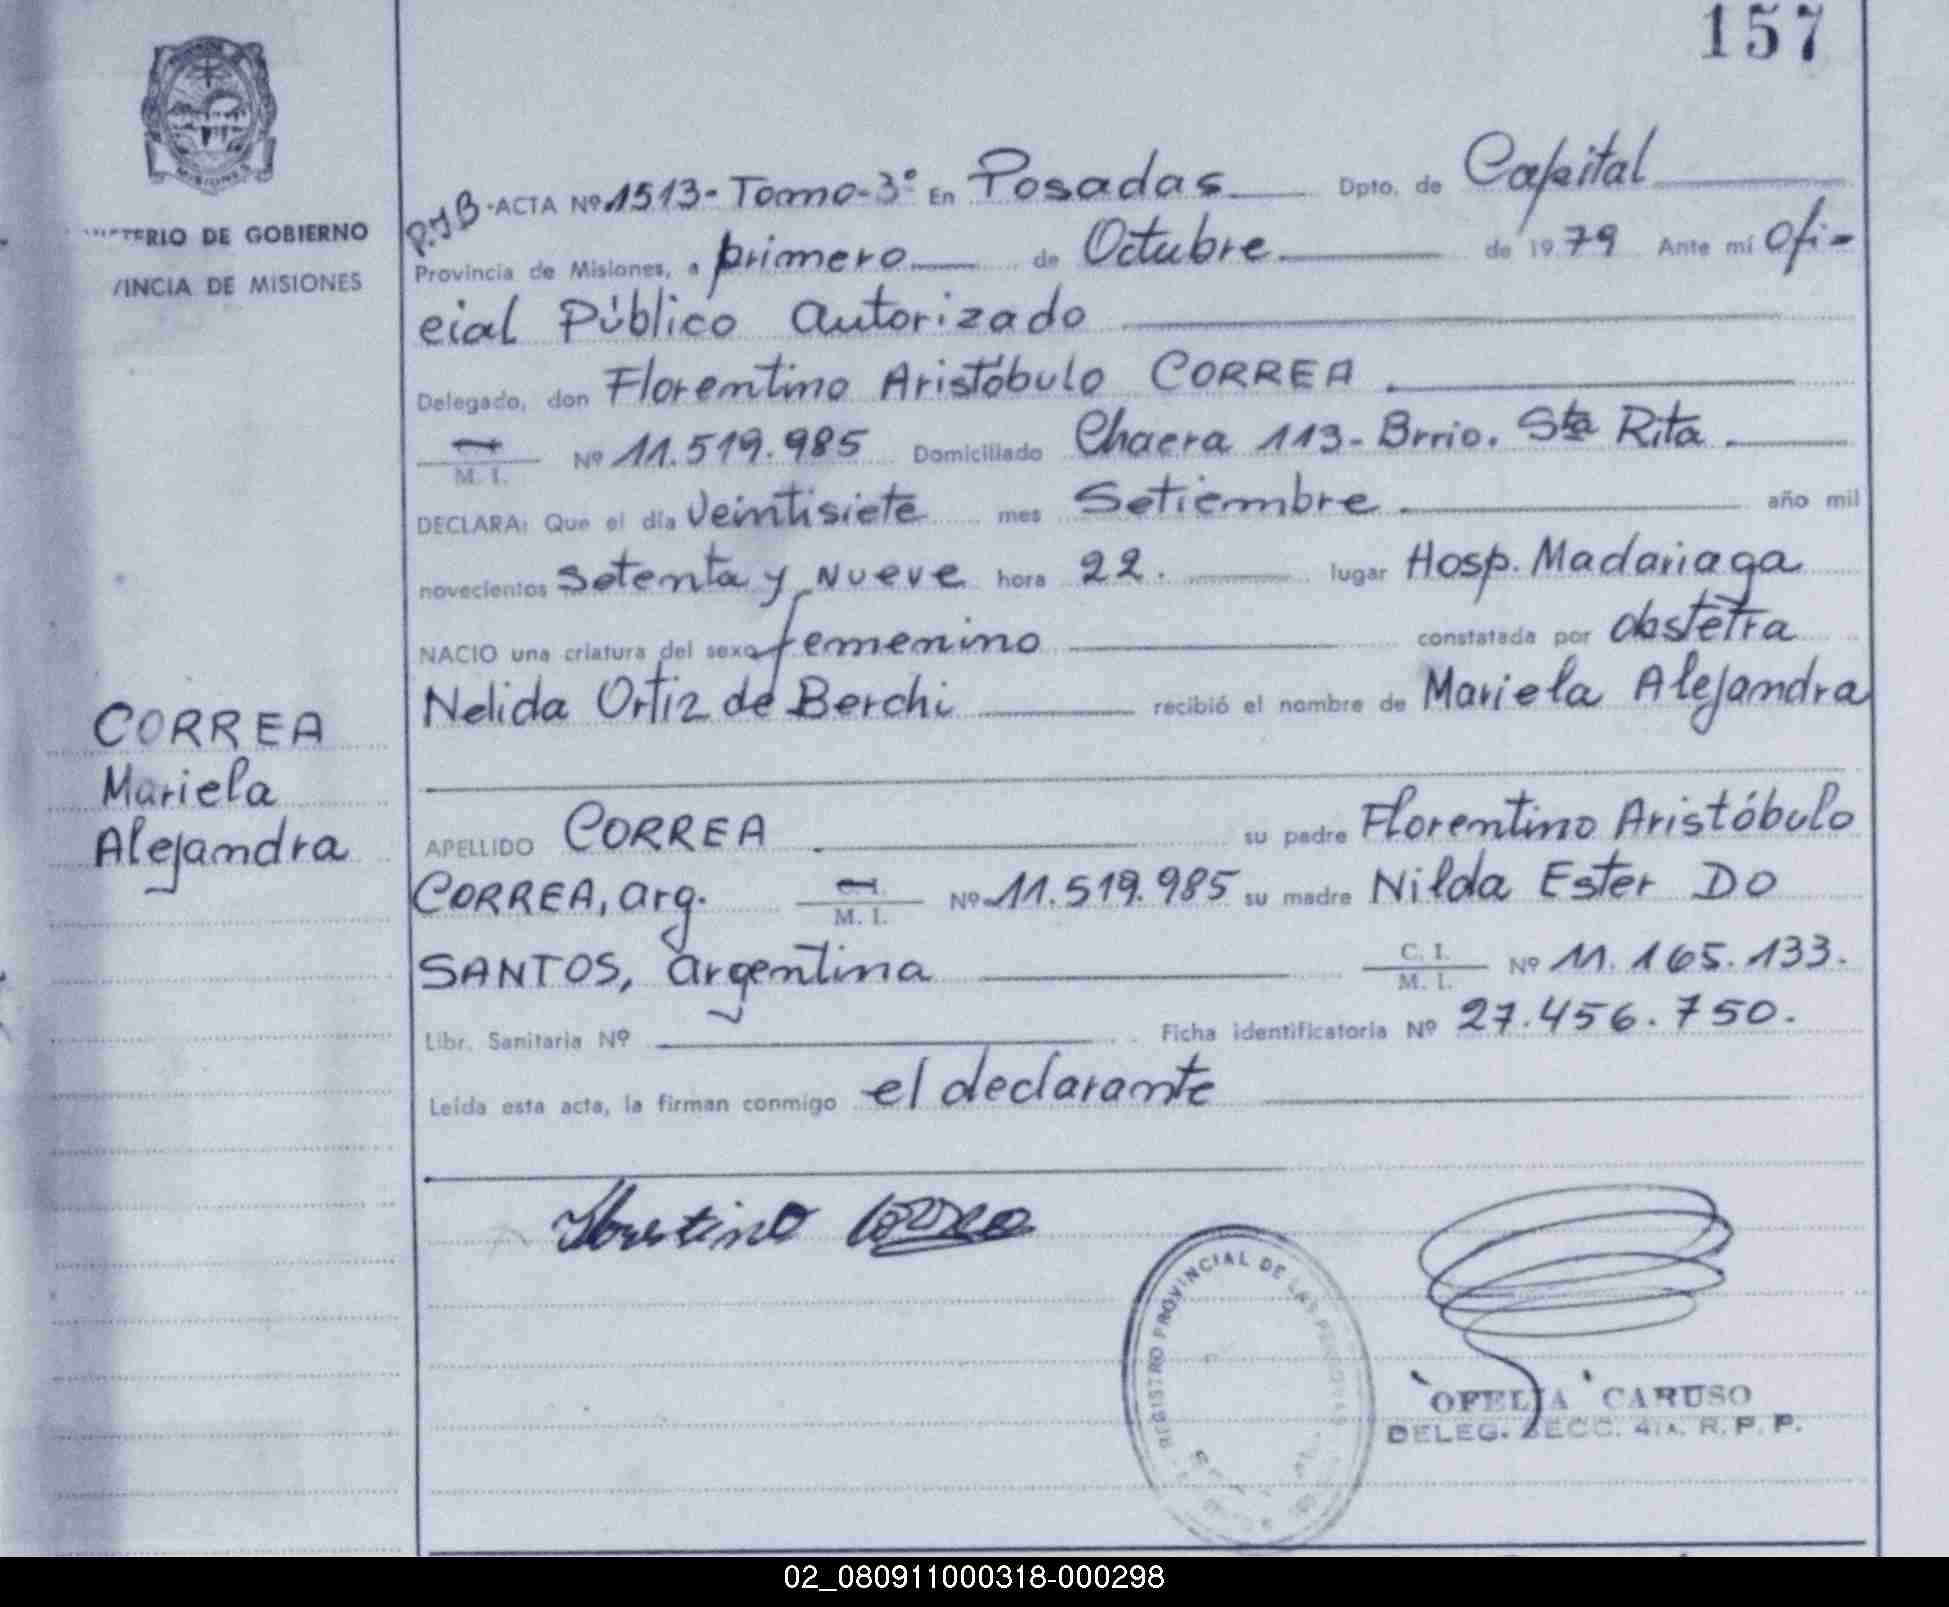 157
MISIONES
TERIO DE GOBIERNO
VINCIA DE MISIONES
P.J B. ACTA Nº 1513 - Tomo - 3º En Posadas Dpto. de Capital
Provincia de Misiones, a primero de Octubre de 1979 Ante mí Ofi-
cial Público Autorizado
Delegado, don Florentino Aristóbulo CORREA
M. I. Nº 11.519.985 Domiciliado Chacra 113 - Brrio. Sta Rita
DECLARA: Que el día Veintisiete mes Setiembre año mil
novecientos setenta y Nueve hora 22. lugar Hosp. Madariaga
NACIO una criatura del sexo femenino constatada por obstetra
Nelida Ortiz de Berchi recibió el nombre de Mariela Alejandra
CORREA
Mariela
Alejandra
APELLIDO CORREA su padre Florentino Aristóbulo
CORREA, arg. M. I. Nº 11.519.985 su madre Nilda Ester DO
SANTOS, argentina C. I. M. I. Nº 11.165.133.
Libr. Sanitaria Nº Ficha identificatoria Nº 27.456.750.
Leída esta acta, la firman conmigo el declarante
Florentino Correa
REGISTRO PROVINCIAL DE LAS PERSONAS
OFELIA CARUSO
DELEG. SECC. 4ta. R. P. P.
02_080911000318-000298